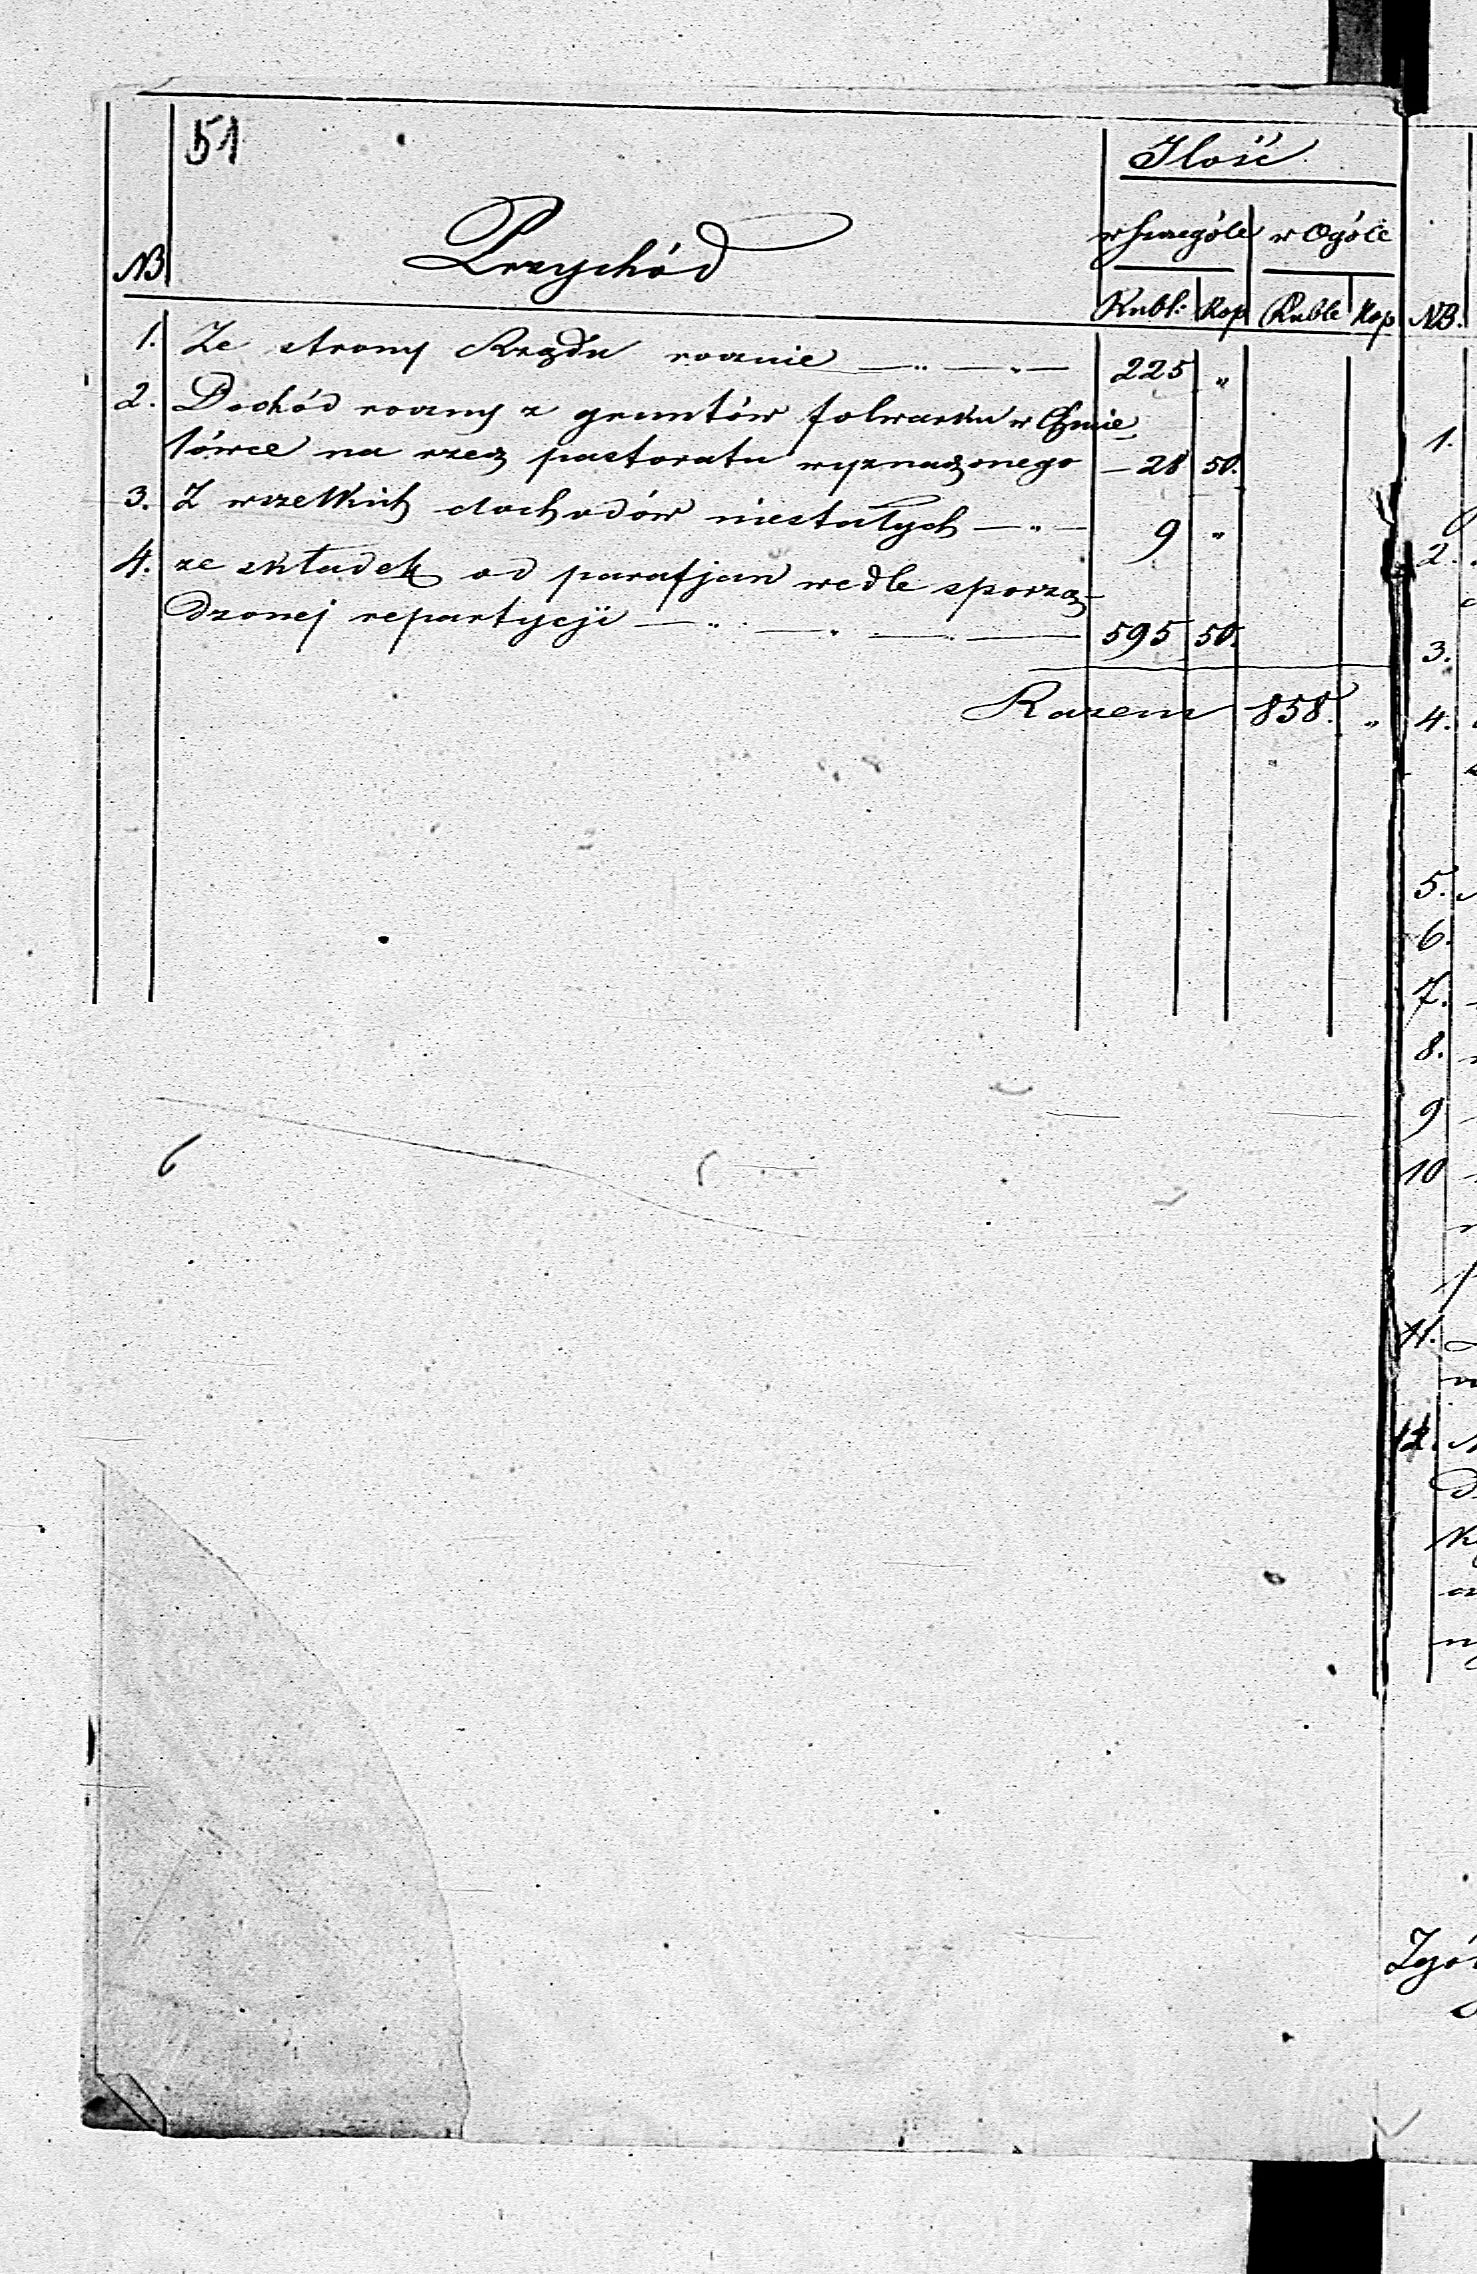 51
Ilość
Przychód
w szczególe w Ogóle
NB
Rubl: Kop Ruble Kop NB.
1. Ze strony Rządu rocznie 225 "
2. Dochód roczny z gruntów folwarku w Chmie
lówce na rzecz pastoratu wyznaczonego 28 50.
3. Z wszelkich dochodów niestałych 9 "
4. ze składek od parafjan wedle sporzą-
dzonej repartycji 595 50.
Razem 858. "
1.
2.
3.
4.
5.
6.
7.
8.
9
10
11.
12.